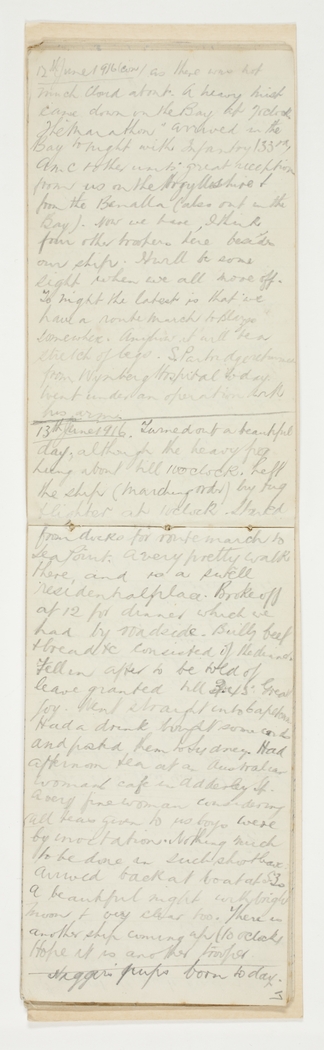 12th June 1916 (cont) as there was not
much cloud about. A heavy mist
came down on the Bay at 7 o'clock
The "Marathon" arrived in the
Bay to night with Infantry 133rd,
A.M.C & other units; great reception
from us on the Horymshire &
from the Benalla (also out in the
Bay). Now we have, I think
four other troopers here besides
our ships. It will be some
sight when we all move off.
To night the latest is that we
have a route march to
somewhere. Anyhow it will be a
stretch of legs. returned
from Wynberg Hospital to day
went under an operation with
his arms
13th June 1916. Turned out a beautiful
day, although the heavy fog
hung about till 10 o'clock. Left
the ship (Marching order) by tug
& lighter at 9 o'clock. Started
from docks for route march to
Sea Point. A very pretty walk
there, and is a swell
residential place. Broke off
at 12 for dinner which we
had by roadside. Bully beef
& bread &c consisted of the dinner.
Fell in after to be told of
leave granted till 5. Great
joy. Went straight into Capetown
Had a drink bought some cards
and posted them to Sydney. Had
afternoon tea at an Australian
womans cafe in Adderley St.
A very fine woman considering
all teas given to us boys were
by invitation. Nothing much
to be done in such short leave
arrived back at boat at 5.30
A beautiful night with bright
moon & very clear too. There is
another ship coming up (10 o'clock)
Hope it is another trooper
Haggis pups born to day.